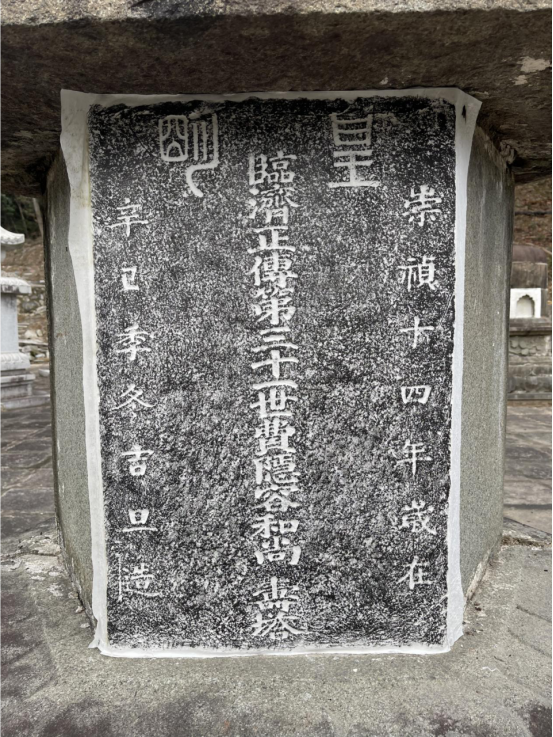 皇明
崇禎十四年歲在
臨濟正傳第三十一世費隱容和尚壽塔
辛巳季冬吉旦造